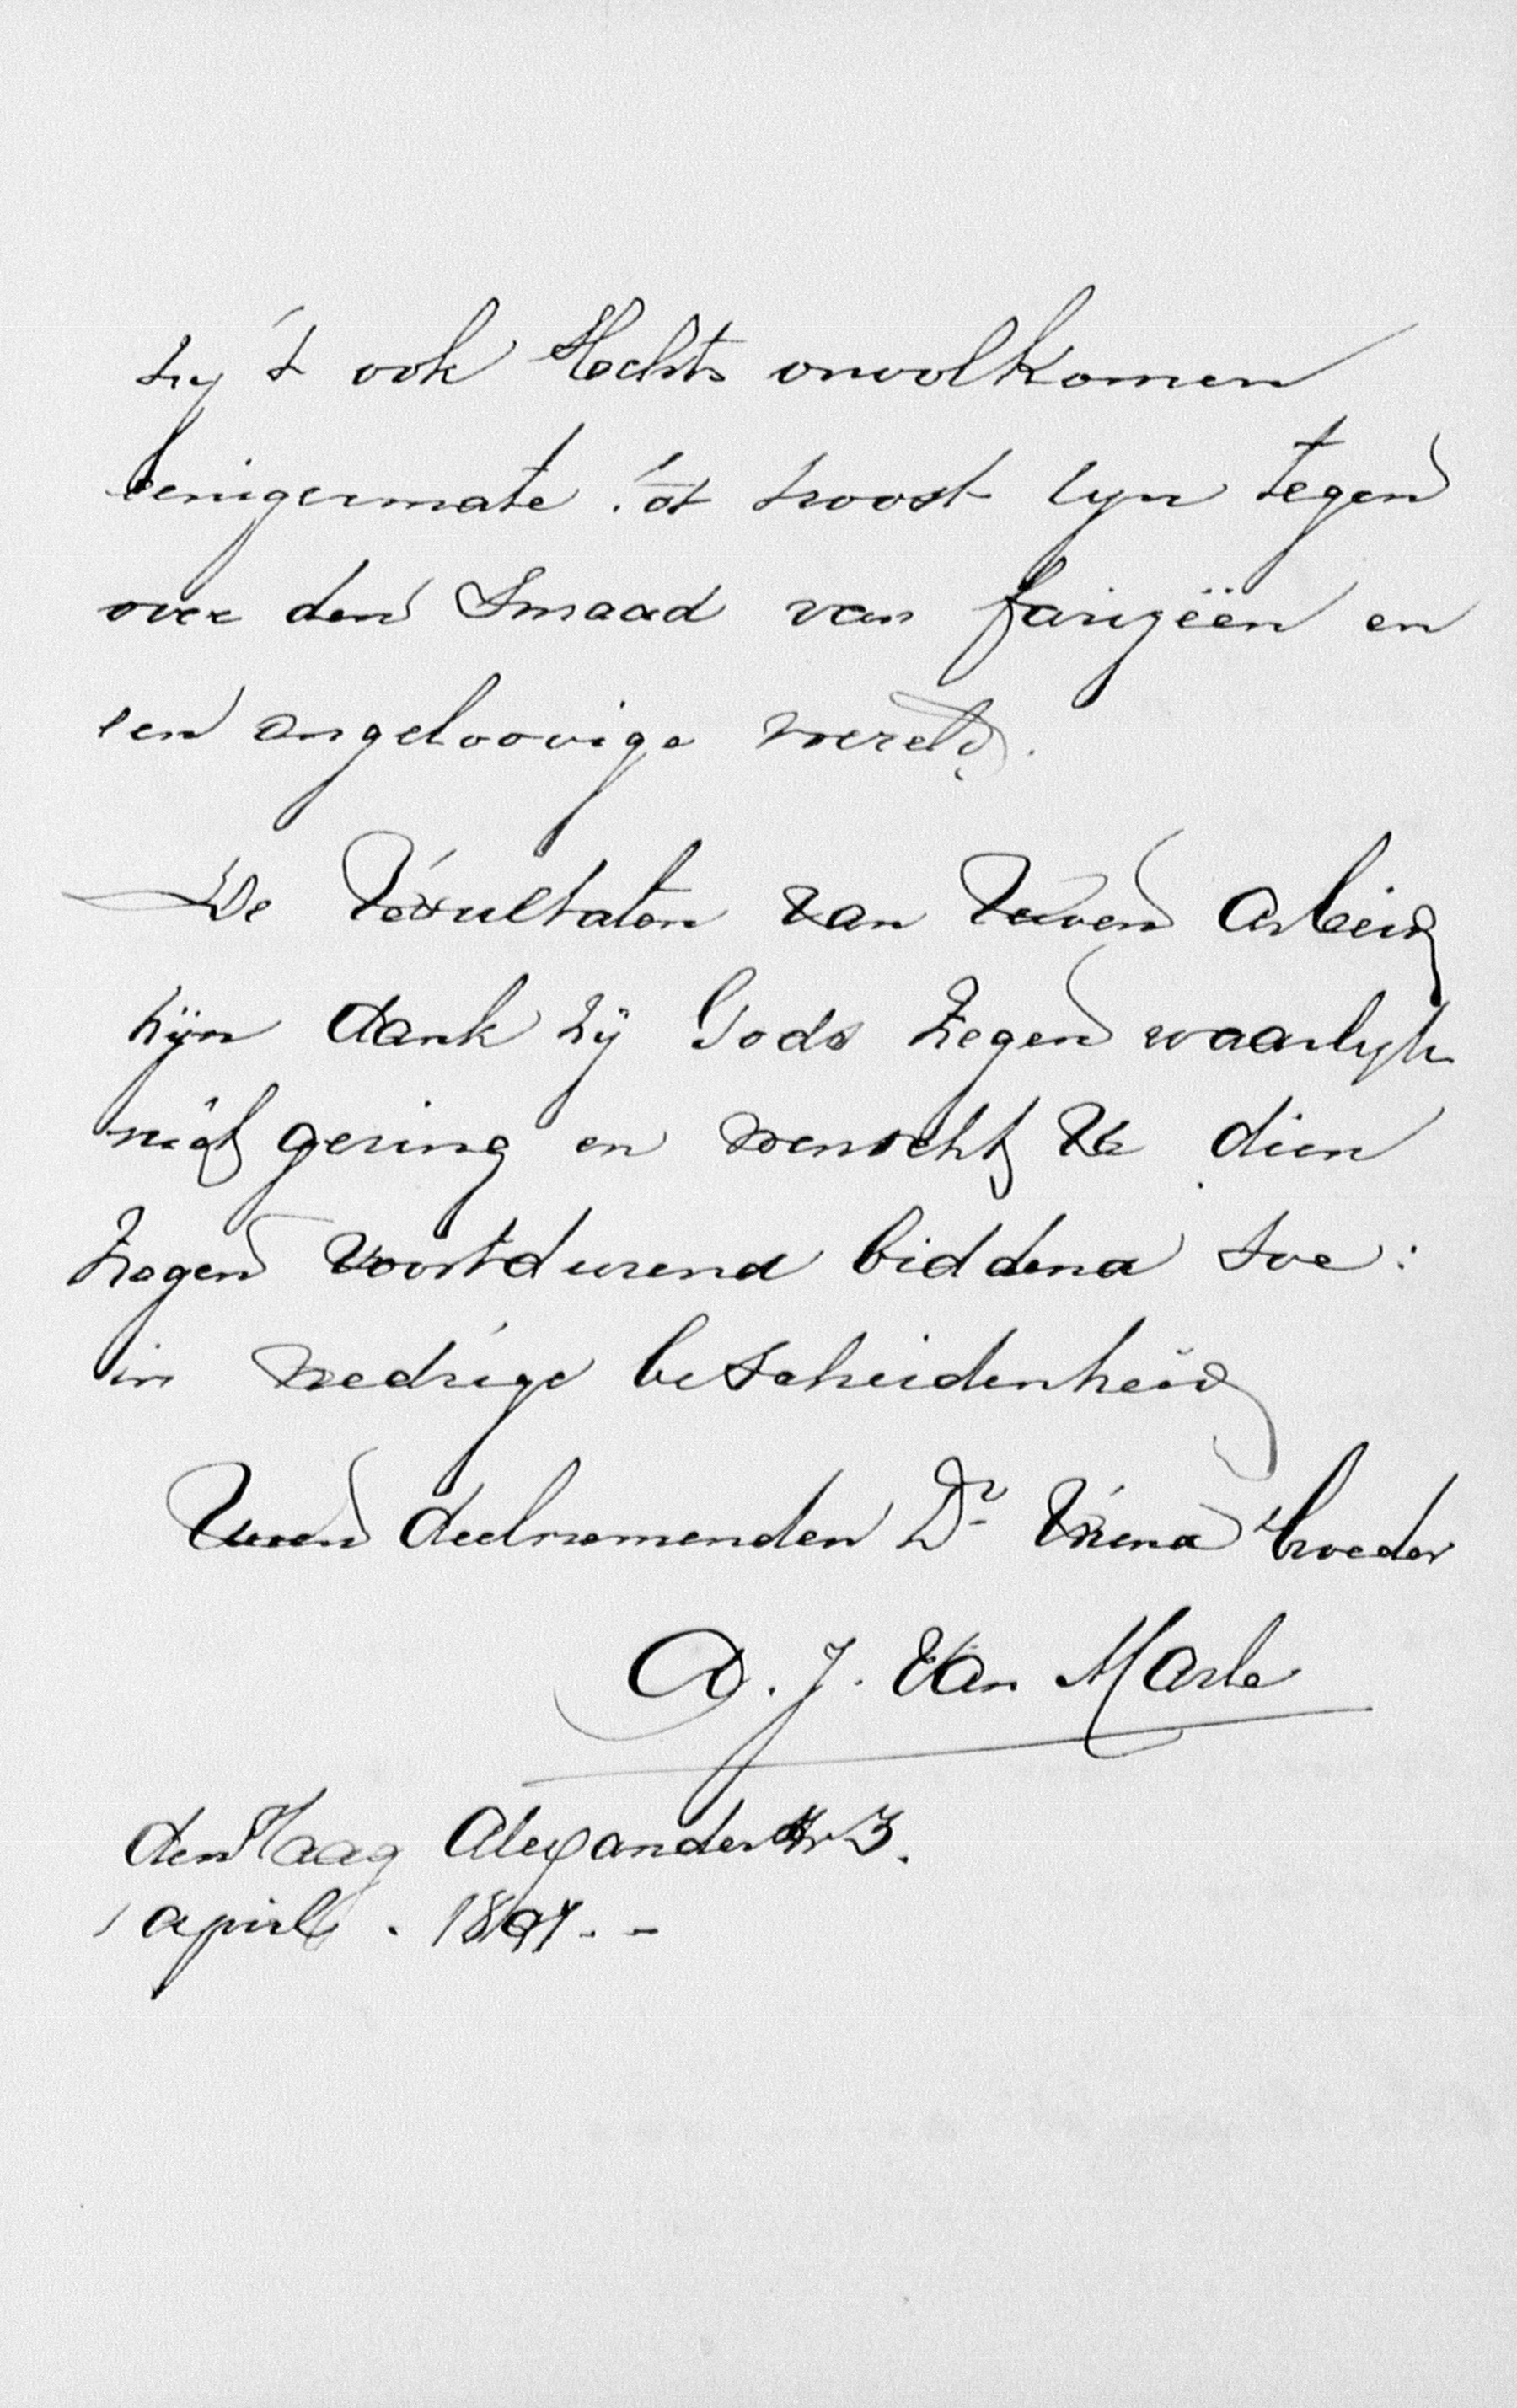 zy 't ook slechts onvolkomen
eenigermate tot troost zyn tegen
over den smaad van farizeën en
een ongeloovige wereld.
De resultaten van Uwen arbeid
zijn dank zij Gods zegen waarlyk
niet gering en wenscht U dien
zegen voortdurend biddend toe:
in nedrige bescheidenheid
Uwen deelnemenden Dr Vriend broeder
A. J. Van Marle
den Haag Alexanderstr 3.
1 april . 1897. -